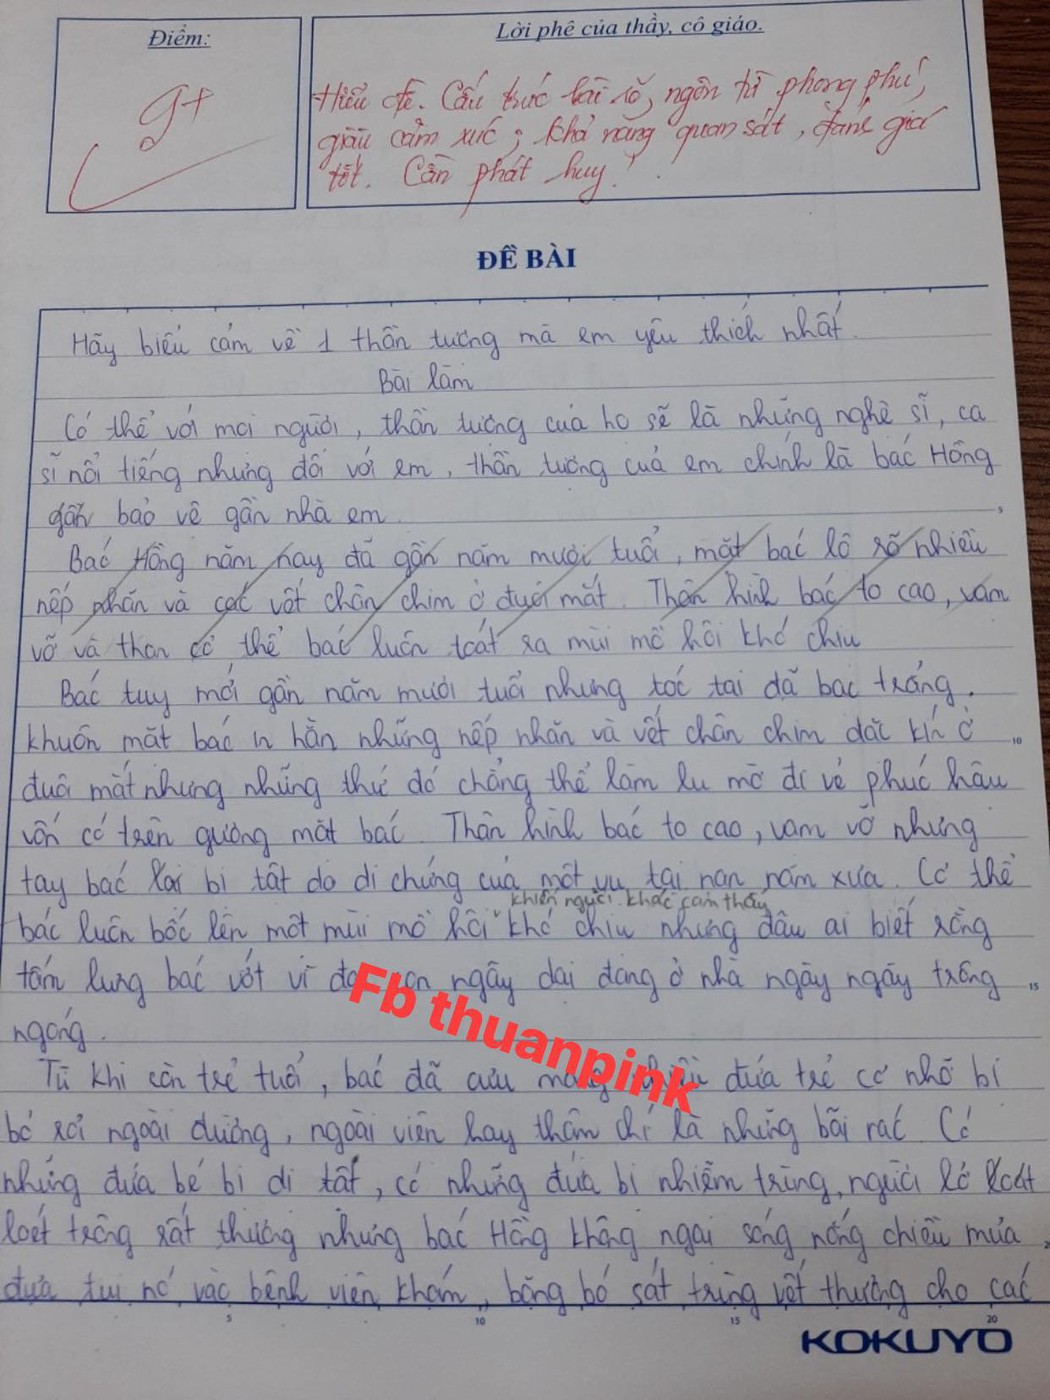 Điểm:
Lời phê của thầy, cô giáo.
9+
Hiểu đề. Cấu trúc bài rõ, ngôn từ phong phú,
giàu cảm xúc; khả năng quan sát, đánh giá
tốt. Cần phát huy!
ĐỀ BÀI
Hãy biểu cảm về 1 thần tượng mà em yêu thích nhất.
Bài làm
Có thể với mọi người, thần tượng của họ sẽ là những nghệ sĩ, ca
sĩ nổi tiếng nhưng đối với em, thần tượng của em chính là bác Hồng
gần bảo vệ gần nhà em.
5
Bác Hồng năm nay đã gần năm mươi tuổi, mặt bác lộ rõ nhiều
nếp nhăn và các vết chân chim ở đuôi mắt. Thân hình bác to cao, vạm
vỡ và than cơ thể bác luôn toát ra mùi mồ hôi khó chịu
Bác tuy mới gần năm mươi tuổi nhưng tóc tai đã bạc trắng.
khuôn mặt bác in hằn những nếp nhăn và vết chân chim dặc kín ở
10
đuôi mắt nhưng những thứ đó chẳng thể làm lu mờ đi vẻ phúc hậu
vốn có trên gương mặt bác. Thân hình bác to cao, vạm vỡ nhưng
tay bác lại bị tật do di chứng của một vụ tai nạn năm xưa. Cơ thể
khiến người khác cảm thấy
bác luôn bốc lên một mùi mồ hôi khó chịu nhưng đâu ai biết rằng
tấm lưng bác ướt vì đ con ngây dại đang ở nhà ngày ngày trông
15
ngóng.
Fb thuanpink
Từ khi còn trẻ tuổi, bác đã cưu mang đứa trẻ cơ nhỡ bị
bỏ rơi ngoài đường, ngoài viện hay thậm chí là những bãi rác. Có
những đứa bé bị dị tật, có những đứa bị nhiễm trùng, người lở loét
loét trông rất thương nhưng bác Hồng không ngại sáng nắng chiều mưa
đưa tụi nó vào bệnh viện khám, băng bó sát trùng vết thương cho các
5
10
15
20
KOKUYO